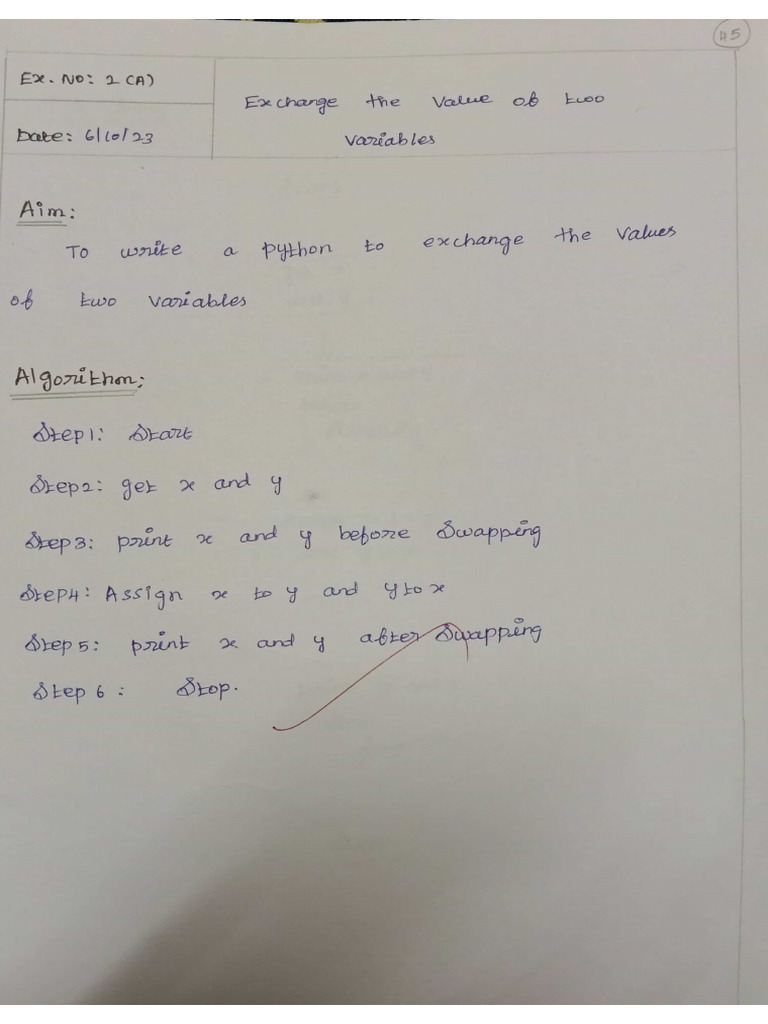 45
Ex. No: 2 (A)
Exchange the Value of two
Date: 6/10/23
Variables
Aim:
To write a python to exchange the values
of two variables
Algorithm:
Step1: Start
Step2: get x and y
Step3: print x and y before Swapping
Step4: Assign x to y and y to x
Step5: print x and y after Swapping
Step 6: Stop.